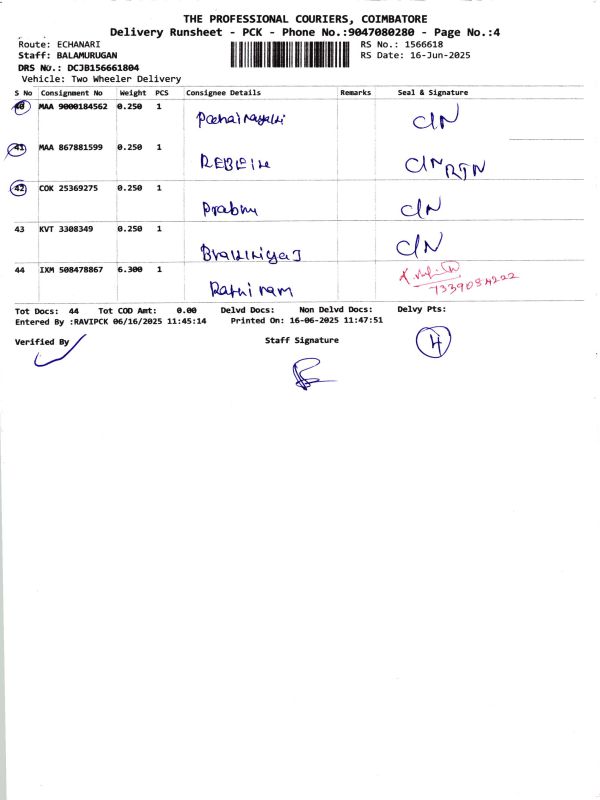 THE PROFESSIONAL COURIERS, COIMBATORE
Delivery Runsheet - PCK - Phone No.:9047080280 - Page No.:4
Route: ECHANARI RS No.: 1566618
Staff: BALAMURUGAN RS Date: 16-Jun-2025
DRS No.: DCJB156661804
Vehicle: Two Wheeler Delivery
S No Consignment No Weight PCS Consignee Details Remarks Seal & Signature
40 MAA 9000184562 0.250 1
C/N
41 MAA 867881599 0.250 1
C/N RTN
42 COK 25369275 0.250 1
Prabhu C/N
43 KVT 3308349 0.250 1
C/N
44 IXM 508478867 6.300 1
Rathi ram
Tot Docs: 44 Tot COD Amt: 0.00 Delvd Docs: Non Delvd Docs: Delvy Pts:
Entered By :RAVIPCK 06/16/2025 11:45:14 Printed On: 16-06-2025 11:47:51
Verified By Staff Signature 4